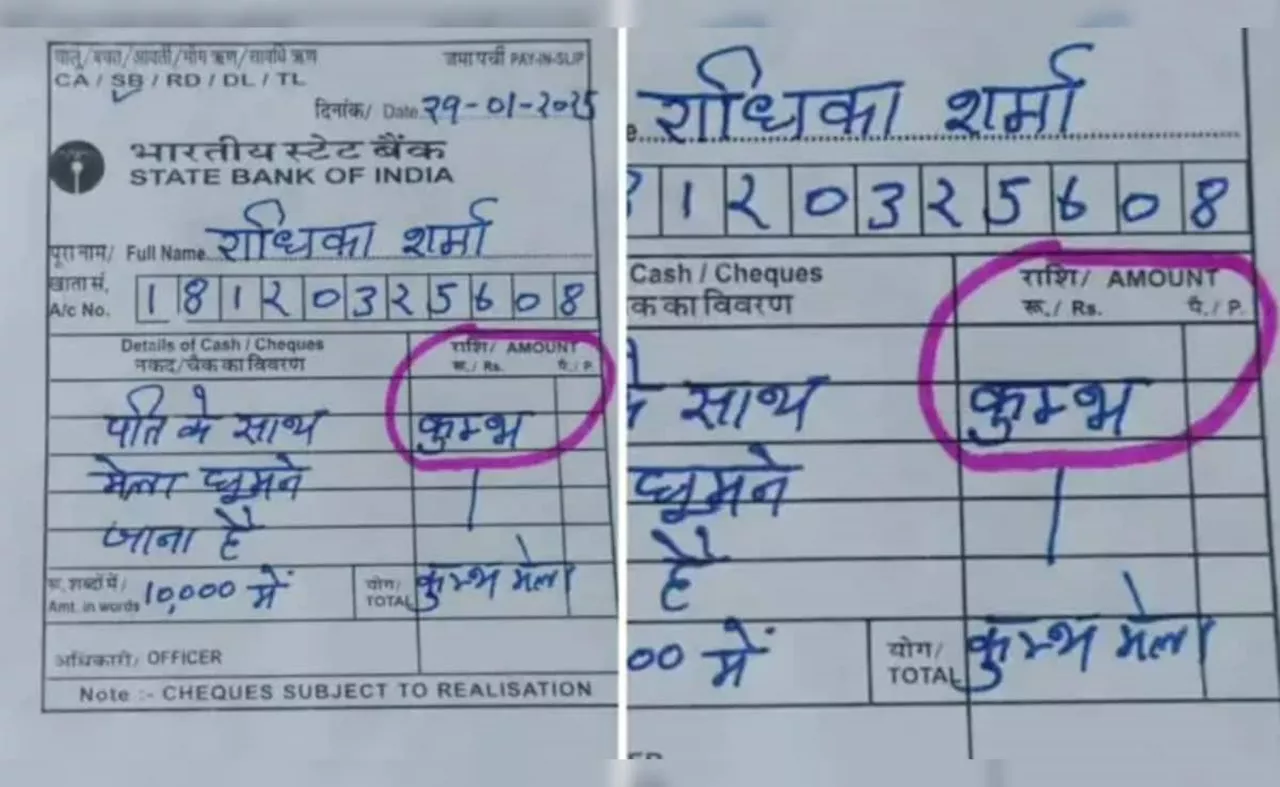 चालू/बचत/आवर्ती/माँग ऋण/सावधि ऋण
जमा पर्ची PAY-IN-SLIP
CA / SB / RD / DL / TL
दिनांक/ Date २9-01-२०२5
भारतीय स्टेट बैंक
STATE BANK OF INDIA
पूरा नाम/ Full Name राधिका शर्मा
खाता सं.
A/c No. 1 8 1 २ 0 3 २ 5 6 0 8
Details of Cash / Cheques राशि/ AMOUNT
नकद/चैक का विवरण रू./ Rs. पै./ P.
पति के साथ कुम्भ
मेला घूमने
जाना है
रू. शब्दों में/ 10,000 में योग/ कुम्भ मेला
Amt. in words TOTAL
अधिकारी/ OFFICER
Note :- CHEQUES SUBJECT TO REALISATION
राधिका शर्मा
1 २ 0 3 २ 5 6 0 8
Cash / Cheques राशि/ AMOUNT
क का विवरण रू./ Rs. पै./ P.
साथ कुम्भ
घूमने
है
00 में योग/ कुम्भ मेला
TOTAL